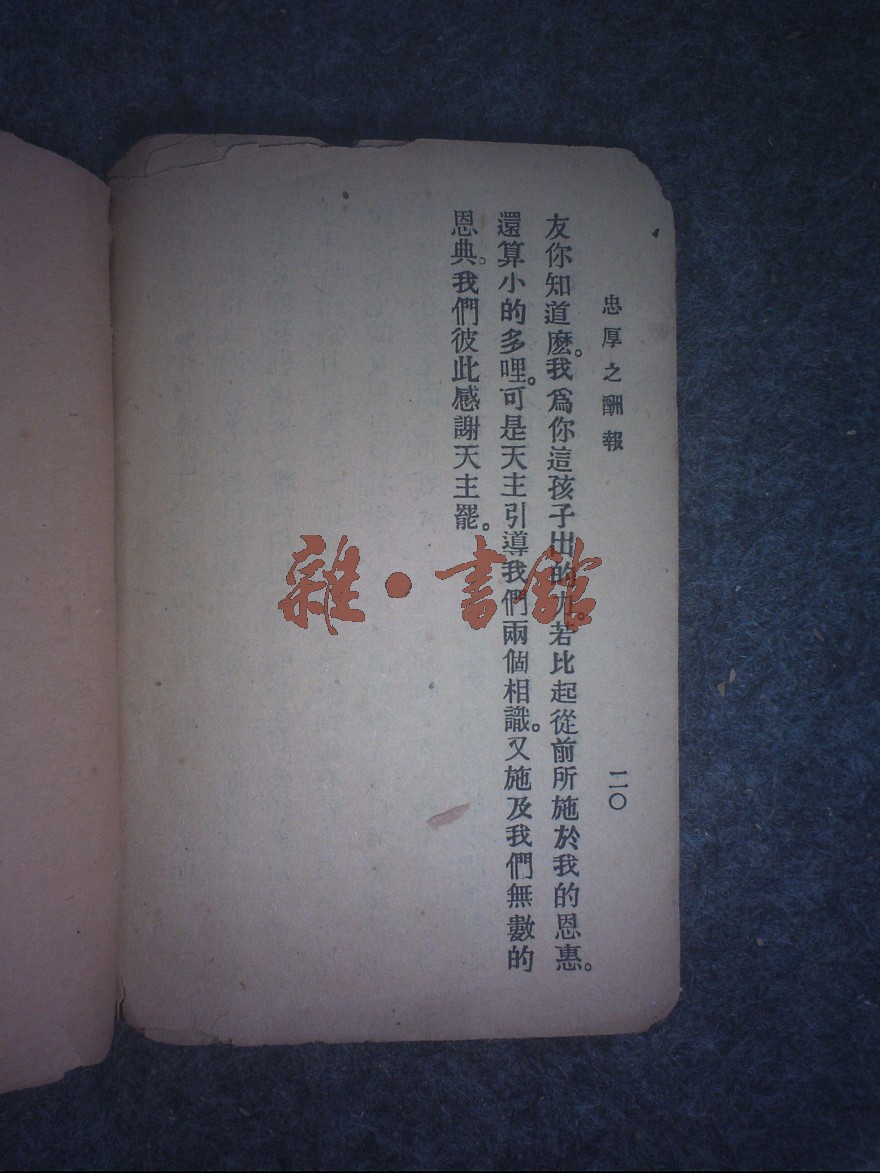 忠厚之酬報
二〇
友你知道麽。我爲你這孩子出的力。若比起從前所施於我的恩惠。
還算小的多哩。可是天主引導我們兩個相識。又施及我們無數的
恩典。我們彼此感謝天主罷。
雜·書館